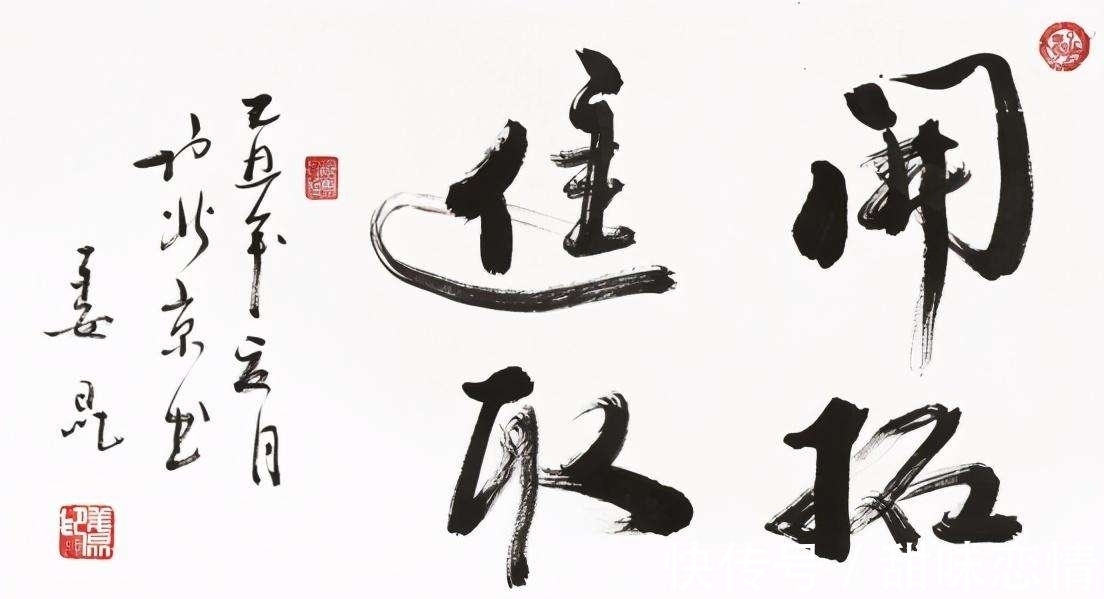 開拓
進取
己丑年五月
於北京書
姜昆
快传号 / 甜味恋情